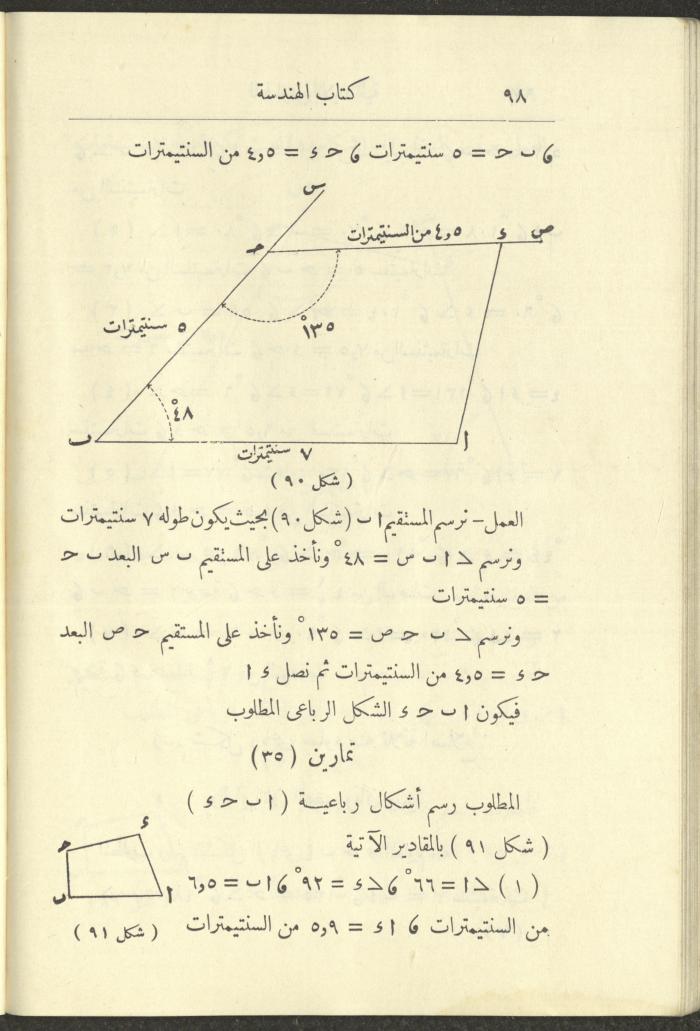 ٩٨
كتاب الهندسة
6 ب ح = ٥ سنتيمترات 6 ح ء = ٤٫٥ من السنتيمترات
س
ص
ء
٤٫٥ من السنتيمترات
ح
١٣٥°
٥ سنتيمترات
٤٨°
ا
ب
٧ سنتيمترات
( شكل ٩٠ )
العمل - نرسم المستقيم ا ب (شكل ٩٠) بحيث يكون طوله ٧ سنتيمترات
ونرسم > ا ب س = ٤٨° ونأخذ على المستقيم ب س البعد ب ح
= ٥ سنتيمترات
ونرسم > ب ح ص = ١٣٥° ونأخذ على المستقيم ح ص البعد
ح ء = ٤٫٥ من السنتيمترات ثم نصل ء ا
فيكون ا ب ح ء الشكل الرباعى المطلوب
تمارين (٣٥)
المطلوب رسم أشكال رباعيـــة ( ا ب ح ء )
( شكل ٩١ ) بالمقادير الآتية
( ١ ) > ا = ٦٦° 6 > ء = ٩٢° 6 ا ب = ٦٫٥
من السنتيمترات 6 ا ء = ٥٫٩ من السنتيمترات
ء
ح
ا
ب
( شكل ٩١ )